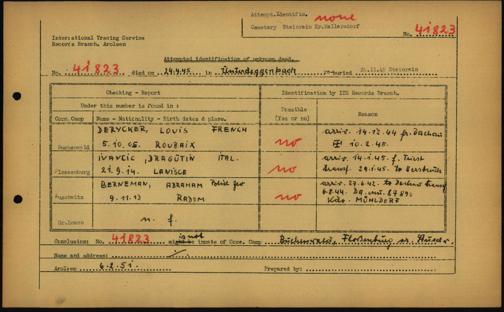 Attempt.Identific. none
Cemetery Steinrain Kr.Mallersdorf
International Tracing Service
Records Branch, Arolsen
No. 41823
Attempted identification of unknown dead.
No. 41823 died on 24.4.45 in Unterdeggenbach re-buried 21.11.45 Steinrain
Checking - Report
Identification by ITS Records Branch.
Under this number is found :
Tenable
(Yes or no)
Reason
Conc.Camp
Name - Nationality - Birth dates & place.
DERYCKER, LOUIS FRENCH
arriv. 14.12.44 fr. Dachau
Buchenwald
5.10.05. ROUBAIX
no
10.2.45.
IVANCIC, DRAGUTIN ITAL.
arriv. 14.1.45. f. Triest
Flossenburg
21.9.14. LANISCE
no
transf. 29.1.45. to Hersbruck
BERNEMAN, ABRAHAM Polish Jew
arriv. 27.6.42. to Dachau transf.
Auschwitz
9.11.13 RADOM
no
6.8.44. Da. nu. 87.891
Kdo. MÜHLDORF
Gr.Rosen
n. f.
Conclusion: No. 41823 is not inmate of Conc. Camp Buchenwald, Flossenburg or Auschw.
Name and address:
Arolsen 6.2.51. Prepared by: